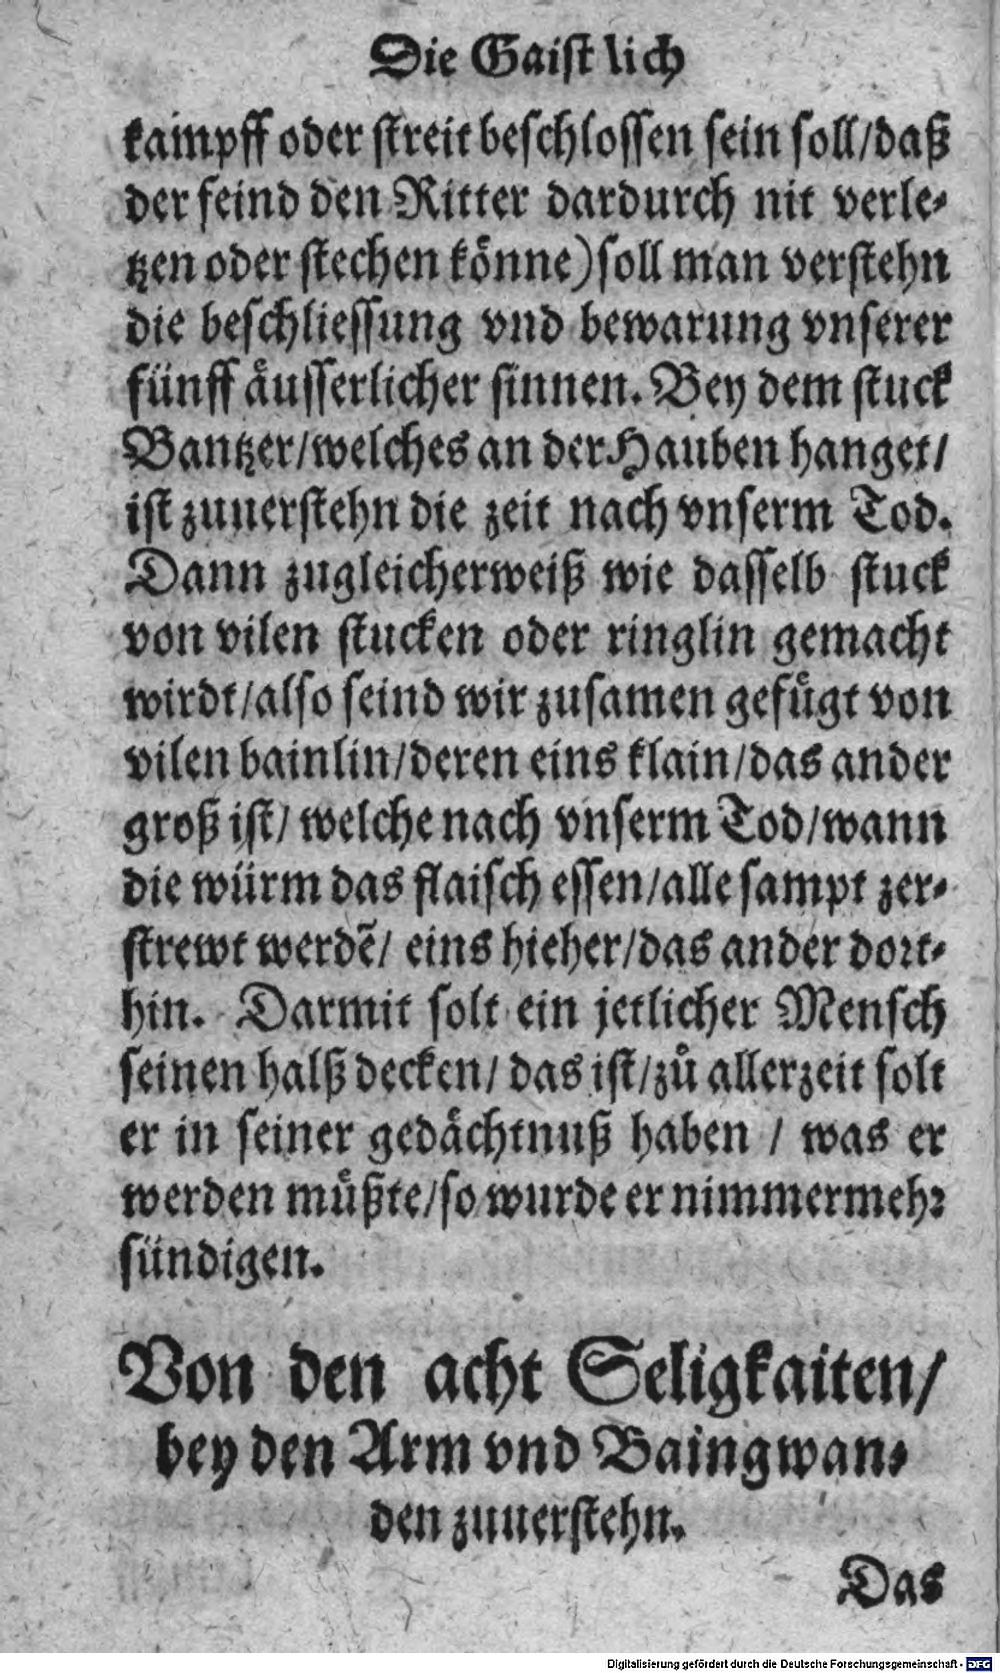 Die Gaistlich
kampff oder streit beschlossen sein soll/daß
der feind den Ritter dardurch nit verle⸗
tzen oder stechen koͤnne) soll man verstehn
die beschliessung vnd bewarung vnserer
fünff aͤusserlicher sinnen. Bey dem stuck
Bantzer/welches an der Hauben hanget/
ist zuuerstehn die zeit nach vnserm Tod.
Dann zugleicherweiß wie dasselb stuck
von vilen stucken oder ringlin gemacht
wirdt/also seind wir zusamen gefuͤgt von
vilen bainlin/deren eins klain/das ander
groß ist/ welche nach vnserm Tod/wann
die würm das flaisch essen/alle sampt zer⸗
strewt werdẽ/ eins hieher/das ander dort⸗
hin. Darmit solt ein jetlicher Mensch
seinen halß decken/ das ist/zuͦ allerzeit solt
er in seiner gedaͤchtnuß haben / was er
werden muͤßte/so wurde er nimmermehr
sündigen.
Von den acht Seligkaiten/
bey den Arm vnd Baingwan⸗
den zuuerstehn.
Das
Digitalisierung gefördert durch die Deutsche Forschungsgemeinschaft - DFG